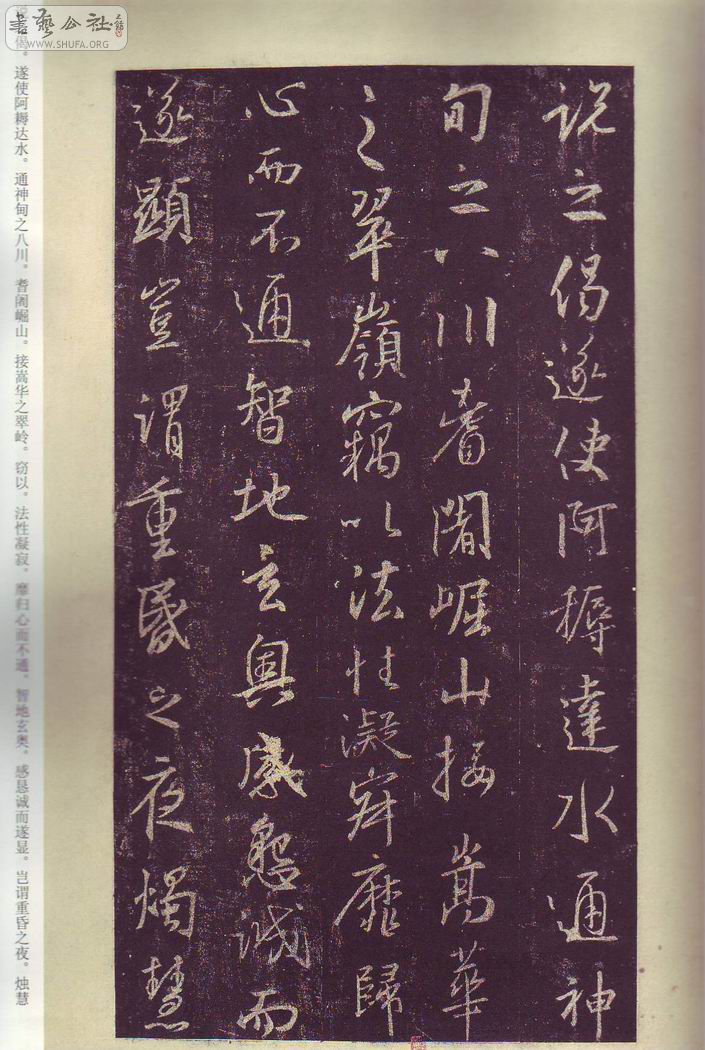 说之偈遂使阿耨達水通神
甸之八川耆闍崛山接嵩華
之翠嶺竊以法性凝寂靡歸
心而不通智地玄奥感懇誠而
遂顯豈謂重昏之夜燭慧
偈。遂使阿耨达水。通神甸之八川。耆阇崛山。接嵩华之翠岭。窃以。法性凝寂。靡归心而不通。智地玄奥。感恳诚而遂显。岂谓重昏之夜。烛慧
書藝公社
WWW.SHUFA.ORG